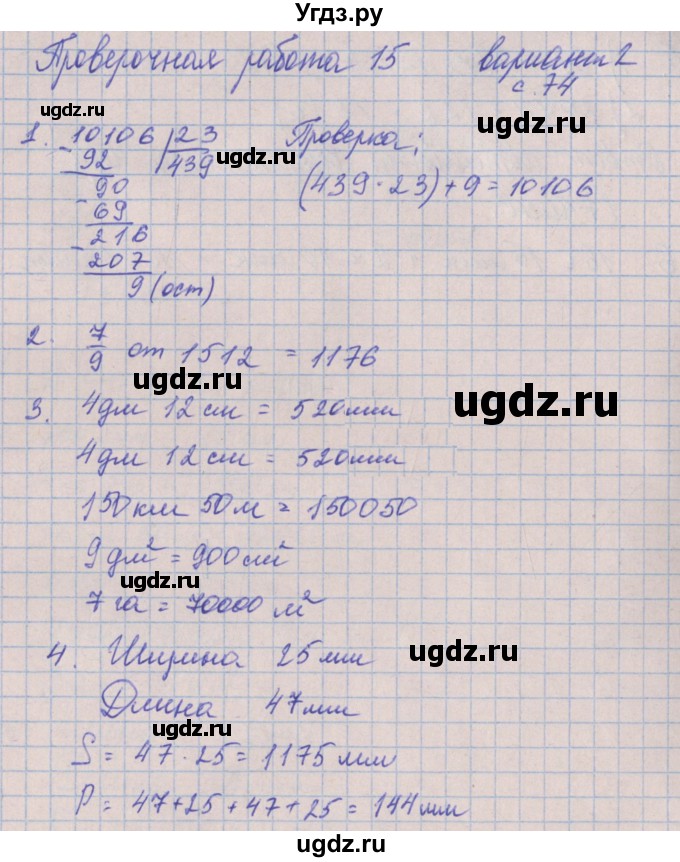 Угдз.ру
Проверочная работа 15 вариант 2
с. 74
ugdz.ru
1. 10106 | 23 Проверка:
- 92 439 ugdz.ru
90 (439 · 23) + 9 = 10106
- 69
216
- 207
9 (ост)
2. 7/9 от 1512 = 1176
ugdz.ru
ugdz.ru
3. 4дм 12 см = 520мм
4дм 12 см = 520мм
ugdz.ru
150км 50м = 150050
9 дм² = 900 см²
ugdz.ru
7 га = 70000 м²
4. Ширина 25 мм
ugdz.ru
Длина 47мм
ugdz.ru
S = 47 · 25 = 1175 мм
P = 47 + 25 + 47 + 25 = 144 мм
ugdz.ru